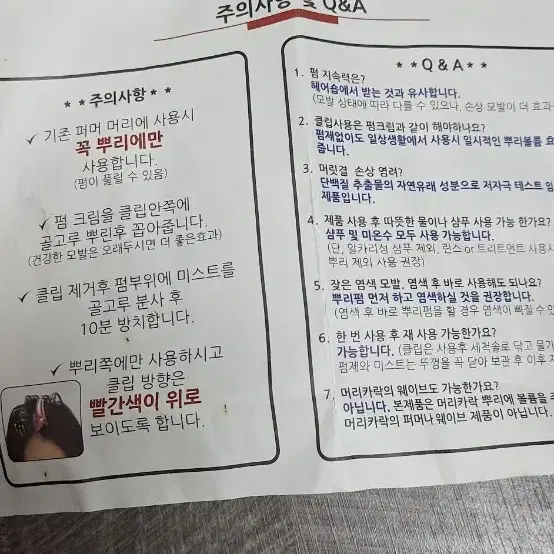 주의사항 및 Q&A
**주의사항**
✓ 기존 퍼머 머리에 사용시
꼭 뿌리에만
사용합니다.
(펌이 풀릴 수 있음)
✓ 펌 크림을 클립안쪽에
골고루 뿌린후 꼽아줍니다.
(건강한 모발은 오래두시면 더 좋은효과)
✓ 클립 제거후 펌부위에 미스트를
골고루 분사 후
10분 방치합니다.
✓ 뿌리쪽에만 사용하시고
클립 방향은
빨간색이 위로
보이도록 합니다.
**Q&A**
1. 펌 지속력은?
헤어숍에서 받는 것과 유사합니다.
(모발 상태에 따라 다를 수 있으나, 손상 모발이 더 효과
2. 클립사용은 펌크림과 같이 해야하나요?
펌제없이도 일상생활에서 사용시 일시적인 뿌리볼륨 효
줍니다.
3. 머릿결 손상 염려?
단백질 추출물의 자연유래 성분으로 저자극 테스트
제품입니다.
4. 제품 사용 후 따뜻한 물이나 샴푸 사용 가능 한가요?
샴푸 및 미온수 모두 사용 가능합니다.
(단, 알카리성 샴푸 제외, 린스 or 트리트먼트 사용시
뿌리 제외 사용 권장)
5. 잦은 염색 모발, 염색 후 바로 사용해도 되나요?
뿌리펌 먼저 하고 염색하실 것을 권장합니다.
(염색 후 바로 뿌리펌을 할 경우 염색이 빠질 수 있
6. 한 번 사용 후 재 사용 가능한가요?
가능합니다. (클립은 사용후 세척솔로 닦고 물기
펌제와 미스트는 뚜껑을 꼭 닫아 보관 후 이후
7. 머리카락의 웨이브도 가능한가요?
아닙니다. 본제품은 머리카락 뿌리에 볼륨을 주
머리카락의 퍼머나 웨이브 제품이 아닙니다.